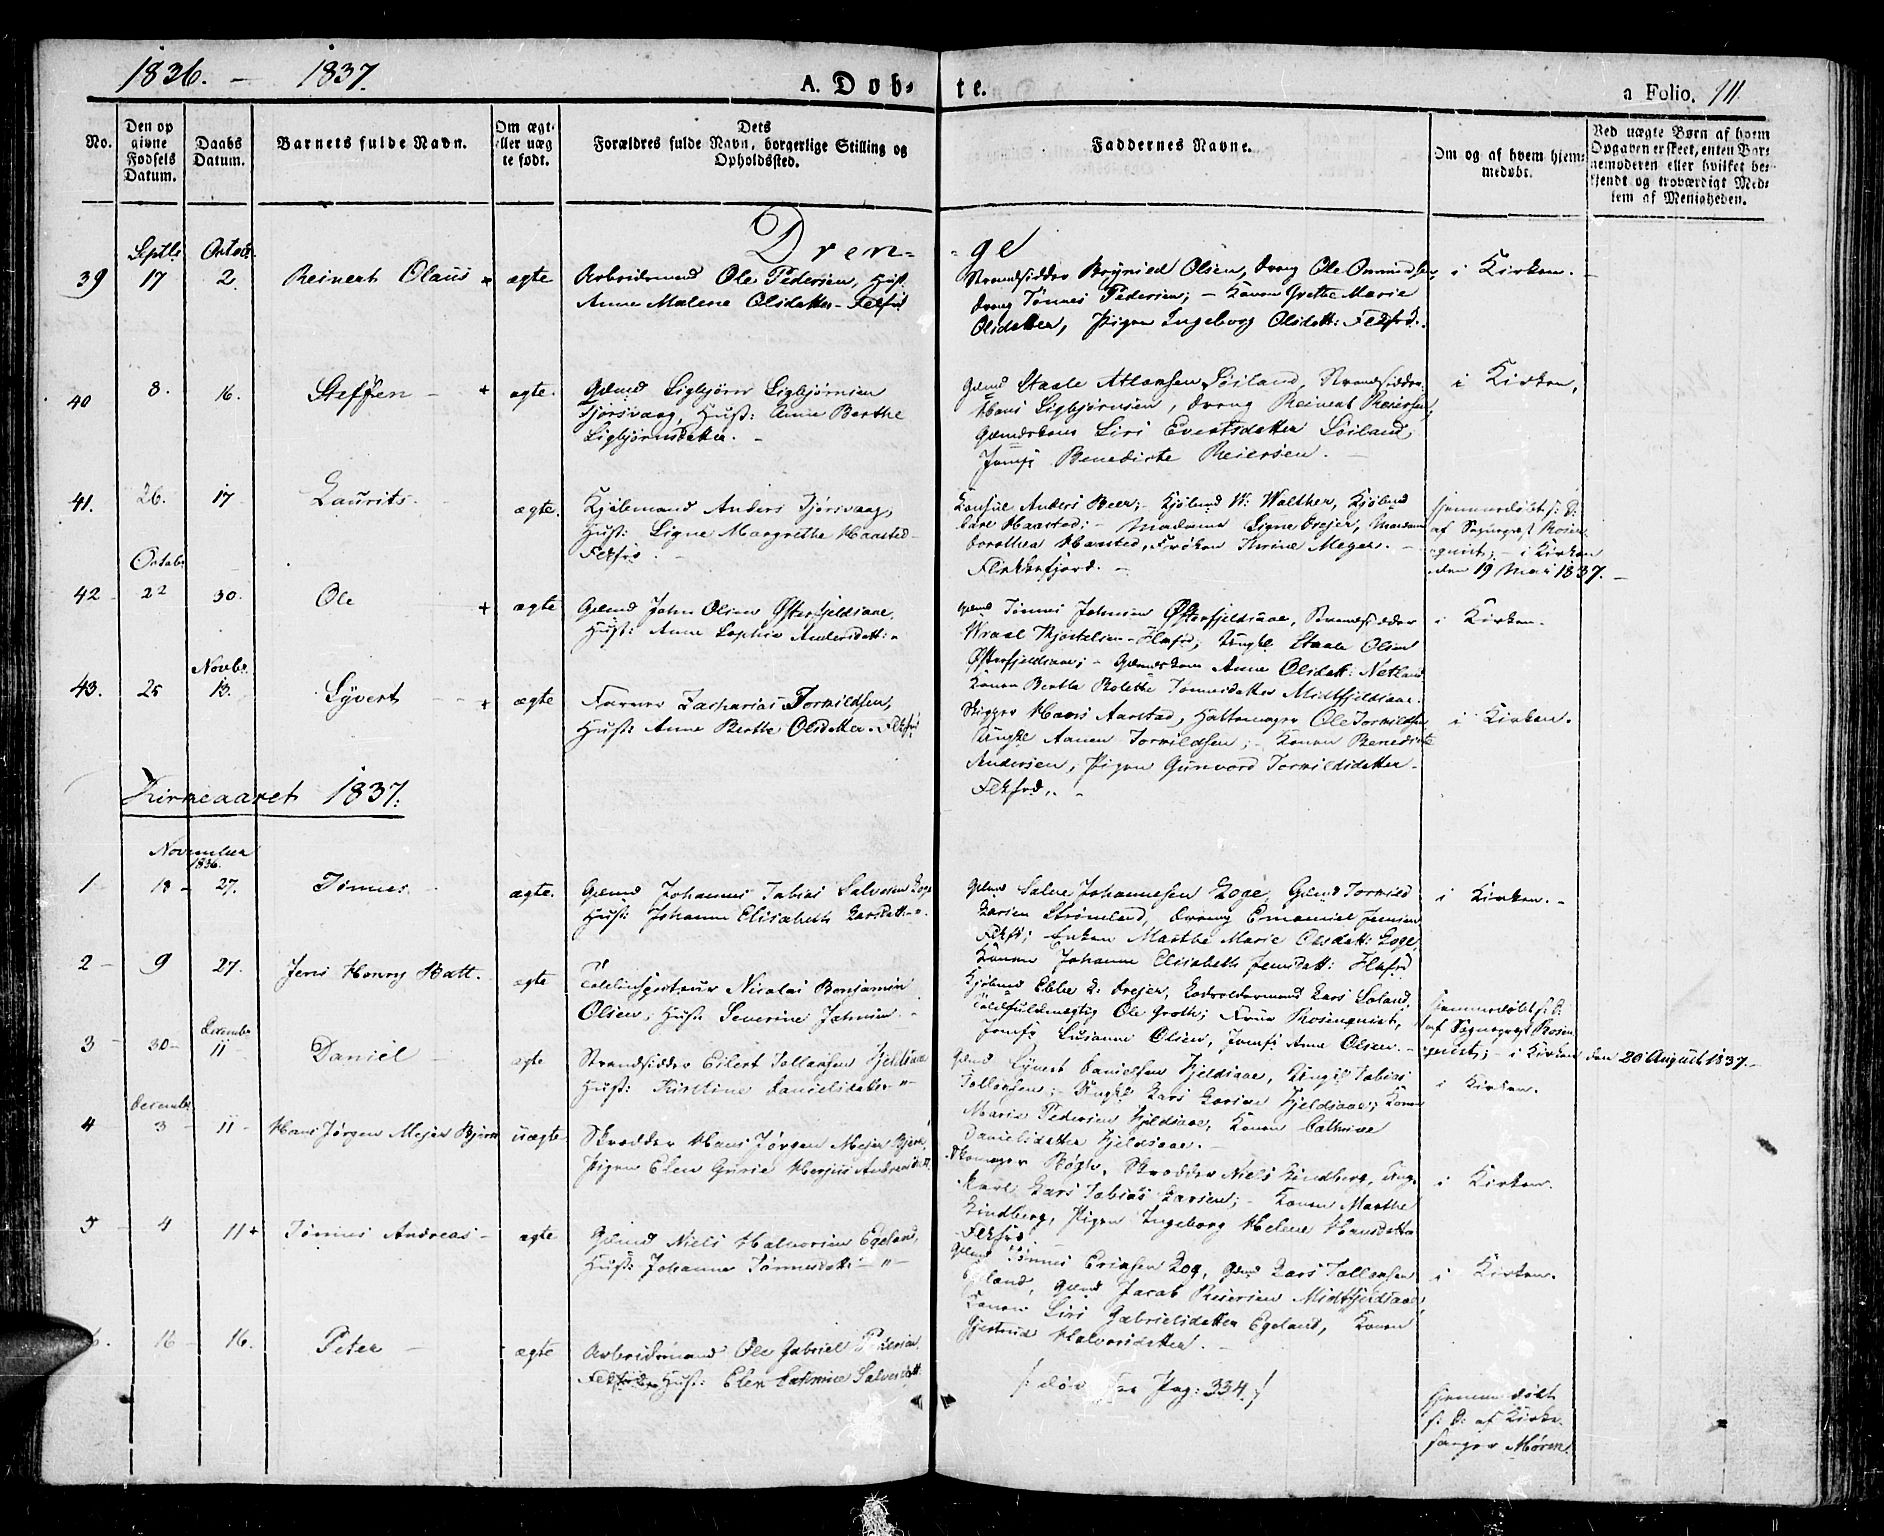 1836. - 1837.
A. Døb- te.
a Folio. 111.
No.
Den opgivne Fødsels Datum.
Daabs Datum.
Barnets fulde Navn.
Om ægte eller uægte født.
Dets Forældres fulde Navn, borgerlige Stilling og Opholdssted.
Faddernes Navne.
Om og af hvem hjemmedøbt.
Ved uægte Børn af hvem Opgaven er skeet, enten Barnemoderen eller hvilket bekjendt og troværdigt Medlem af Menigheden.
Dren- -ge
Septbr Octobr
39 17 2. Reinert Olaus ægte
Arbeidsmand Ole Pedersen, Hust.
Anne Malene Olsdatter - Fekfrd
Strandsidder Brynild Olsen, Dreng Ole
Dreng Tønnes Pedersen; - Konen Grethe Marie
Olsdatter, Pigen Ingeborg Olsdatt: Fekfrd.
i Kirken.
40 8. 16. Steffen + ægte.
Gdmd Sigbjørn Sigbjørnsen
Tjørsvaag, Hust: Anne Berthe
Sigbjørnsdatter. -
Gdmd Staale Atlaksen Søiland, Strandsidder
Hans Sigbjørnsen, Dreng Reinert Reiersen,
Siri Evertsdatter Søiland,
Jomfr Benedicte Reiersen. -
i Kirken,
41. 26. 17 Laurits ægte.
Kjøbmand Anders Tjørsvaag,
Hust: Signe Margrethe Haasted -
Fekfrd. -
Consul Anders Beer; Kjøbmd W: Walther, Kjøbmd
Haastad; - Madame Signe Drejer, Madam
Dorothea Haastad, Frøken Thrine Meyer. -
Flekkefjord. -
Hjemmedøbt f: D:
af Sogneprest Rosenqvist; - i Kirken
den 19 Mai 1837. -
Octobr
42 22 30. Ole + ægte
Gdmd John Olsen Østrefjeldsaae,
Hust: Anne Sophie Andersdatt: -
Gdmd Tønnes Johnsen Østrefjeldsaae, Strandsidder
Wraal Kjøstelsen - Flkfrd, Ungkl Staale Olsen
Østrefjeldsaae; - Anne Olsdatt: Netland
Konen Bertha Bolethe Tønnesdatter Midtfjeldsaae.
i Kirken.
Novbr
43. 25 13. Syvert + ægte
Farver Zacharias Torkildsen,
Hust: Anne Berthe Olsdatter. Flkfrd
Skipper Hans Aarstad, Hattemager Ole Torkildsen
Ungkl Aanen Torkildsen; - Konen Benedicte
Andersen, Pigen Gunvord Torkildsdatter -
Fekfrd. -
i Kirken.
Kirkeaaret 1837.
November
1836.
1 13 27. Tønnes ægte.
Gdmd Johannes Tobias Salvesen Loge
Hust: Johanne Elisabeth Larsdatt: - " -
Gdmd Salve Johannesen Loge, Gdmd Torkild
Larsen Strømland, Dreng Emanuel Jensen
Fekfrd; Enken Marthe Marie Olsdatt: Loge,
Konen Johanne Elisabeth Jensdatt: Flkfrd
i Kirken. -
2 - 9 27. Jens Henry Batt. ægte
Toldinspecteur Nicolai Benjamin
Olsen, Hust: Severine Jahnsen -
Kjøbmd Ebbe L. Drejer, Lars Loland,
Toldfuldmægtig Ole Groth; Frue Rosenqvist,
Jomfr Susanne Olsen, Jomfr Anne Olsen. -
Hjemmedøbt f: D:
af Sogneprest Rosenqvist; - i Kirken den 20 August 1837. -
December
3 - 30 - 11 Daniel ægte
Strandsidder Eilert Tollaksen Fjeldsaae
Hust: Kirstine Danielsdatter - " -
Gdmd Syvert Danielsen Fjeldsaae, Ungkl Tobias
Tollaksen; - Ungkl Lars Larsen Fjeldsaae; Konen
Marie Pedersen Fjeldsaae, Konen Cathrine
Danielsdatter Fjeldsaae. -
i Kirken.
December
4 3 - 11 - Hans Jørgen Mejer Bjørn uægte
Skrædder Hans Jørgen Mejer Bjørn,
Pigen Elen Gurie Andreasdatt.
Skomager Bøgh, Skrædder Niels Lindberg, Ung-
karl Lars Tobias Larsen; - Konen Marthe
Lindberg, Pigen Ingeborg Helene Hansdatter
Flekfrd
i Kirken.
5 - 4 11 + Tønnes Andreas - ægte
Gdmd Niels Halvorsen Egeland,
Hust: Johanne Tønnesdatt: - " -
Gdmd Tønnes Eriksen Log, Gdmd Lars Tollaksen
Egeland, Gdmd Jacob Reiersen Midtfjeldsaae,
Konen Siri Gabrielsdatter Egeland, Konen
Gjertrud Halvorsdatter. -
i Kirken.
6. 16 - 16. Peter - ægte
Arbeidsmand Ole Gabriel Pedersen
Hust: Elen Cathrine Salvesdatt.
/: død see Pag: 334. :/
Hjemmedøbt
f: D: af Kirke-
sanger Møren.